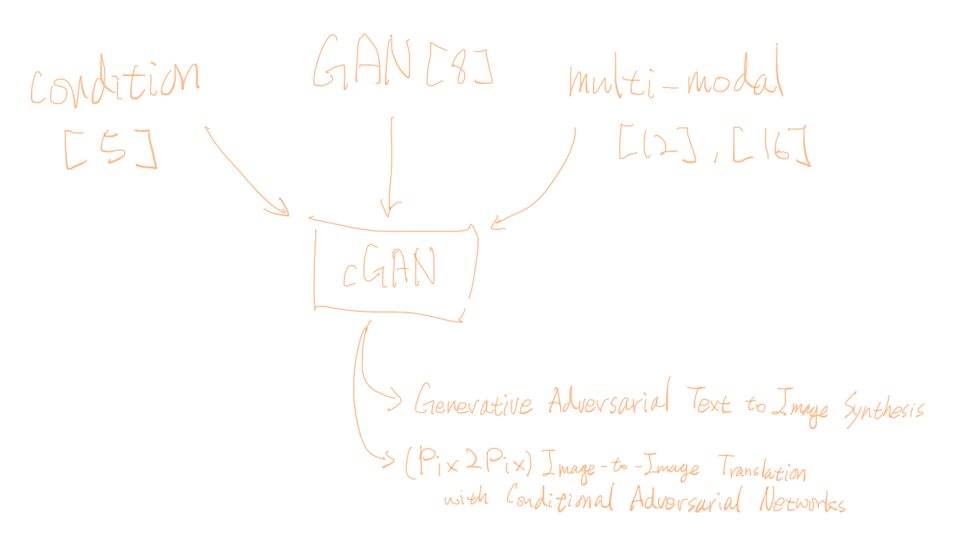 condition
[5]
GAN[8]
multi-modal
[12], [16]
cGAN
Generative Adversarial Text to Image Synthesis
(Pix2Pix) Image-to-Image Translation
with Conditional Adversarial Networks